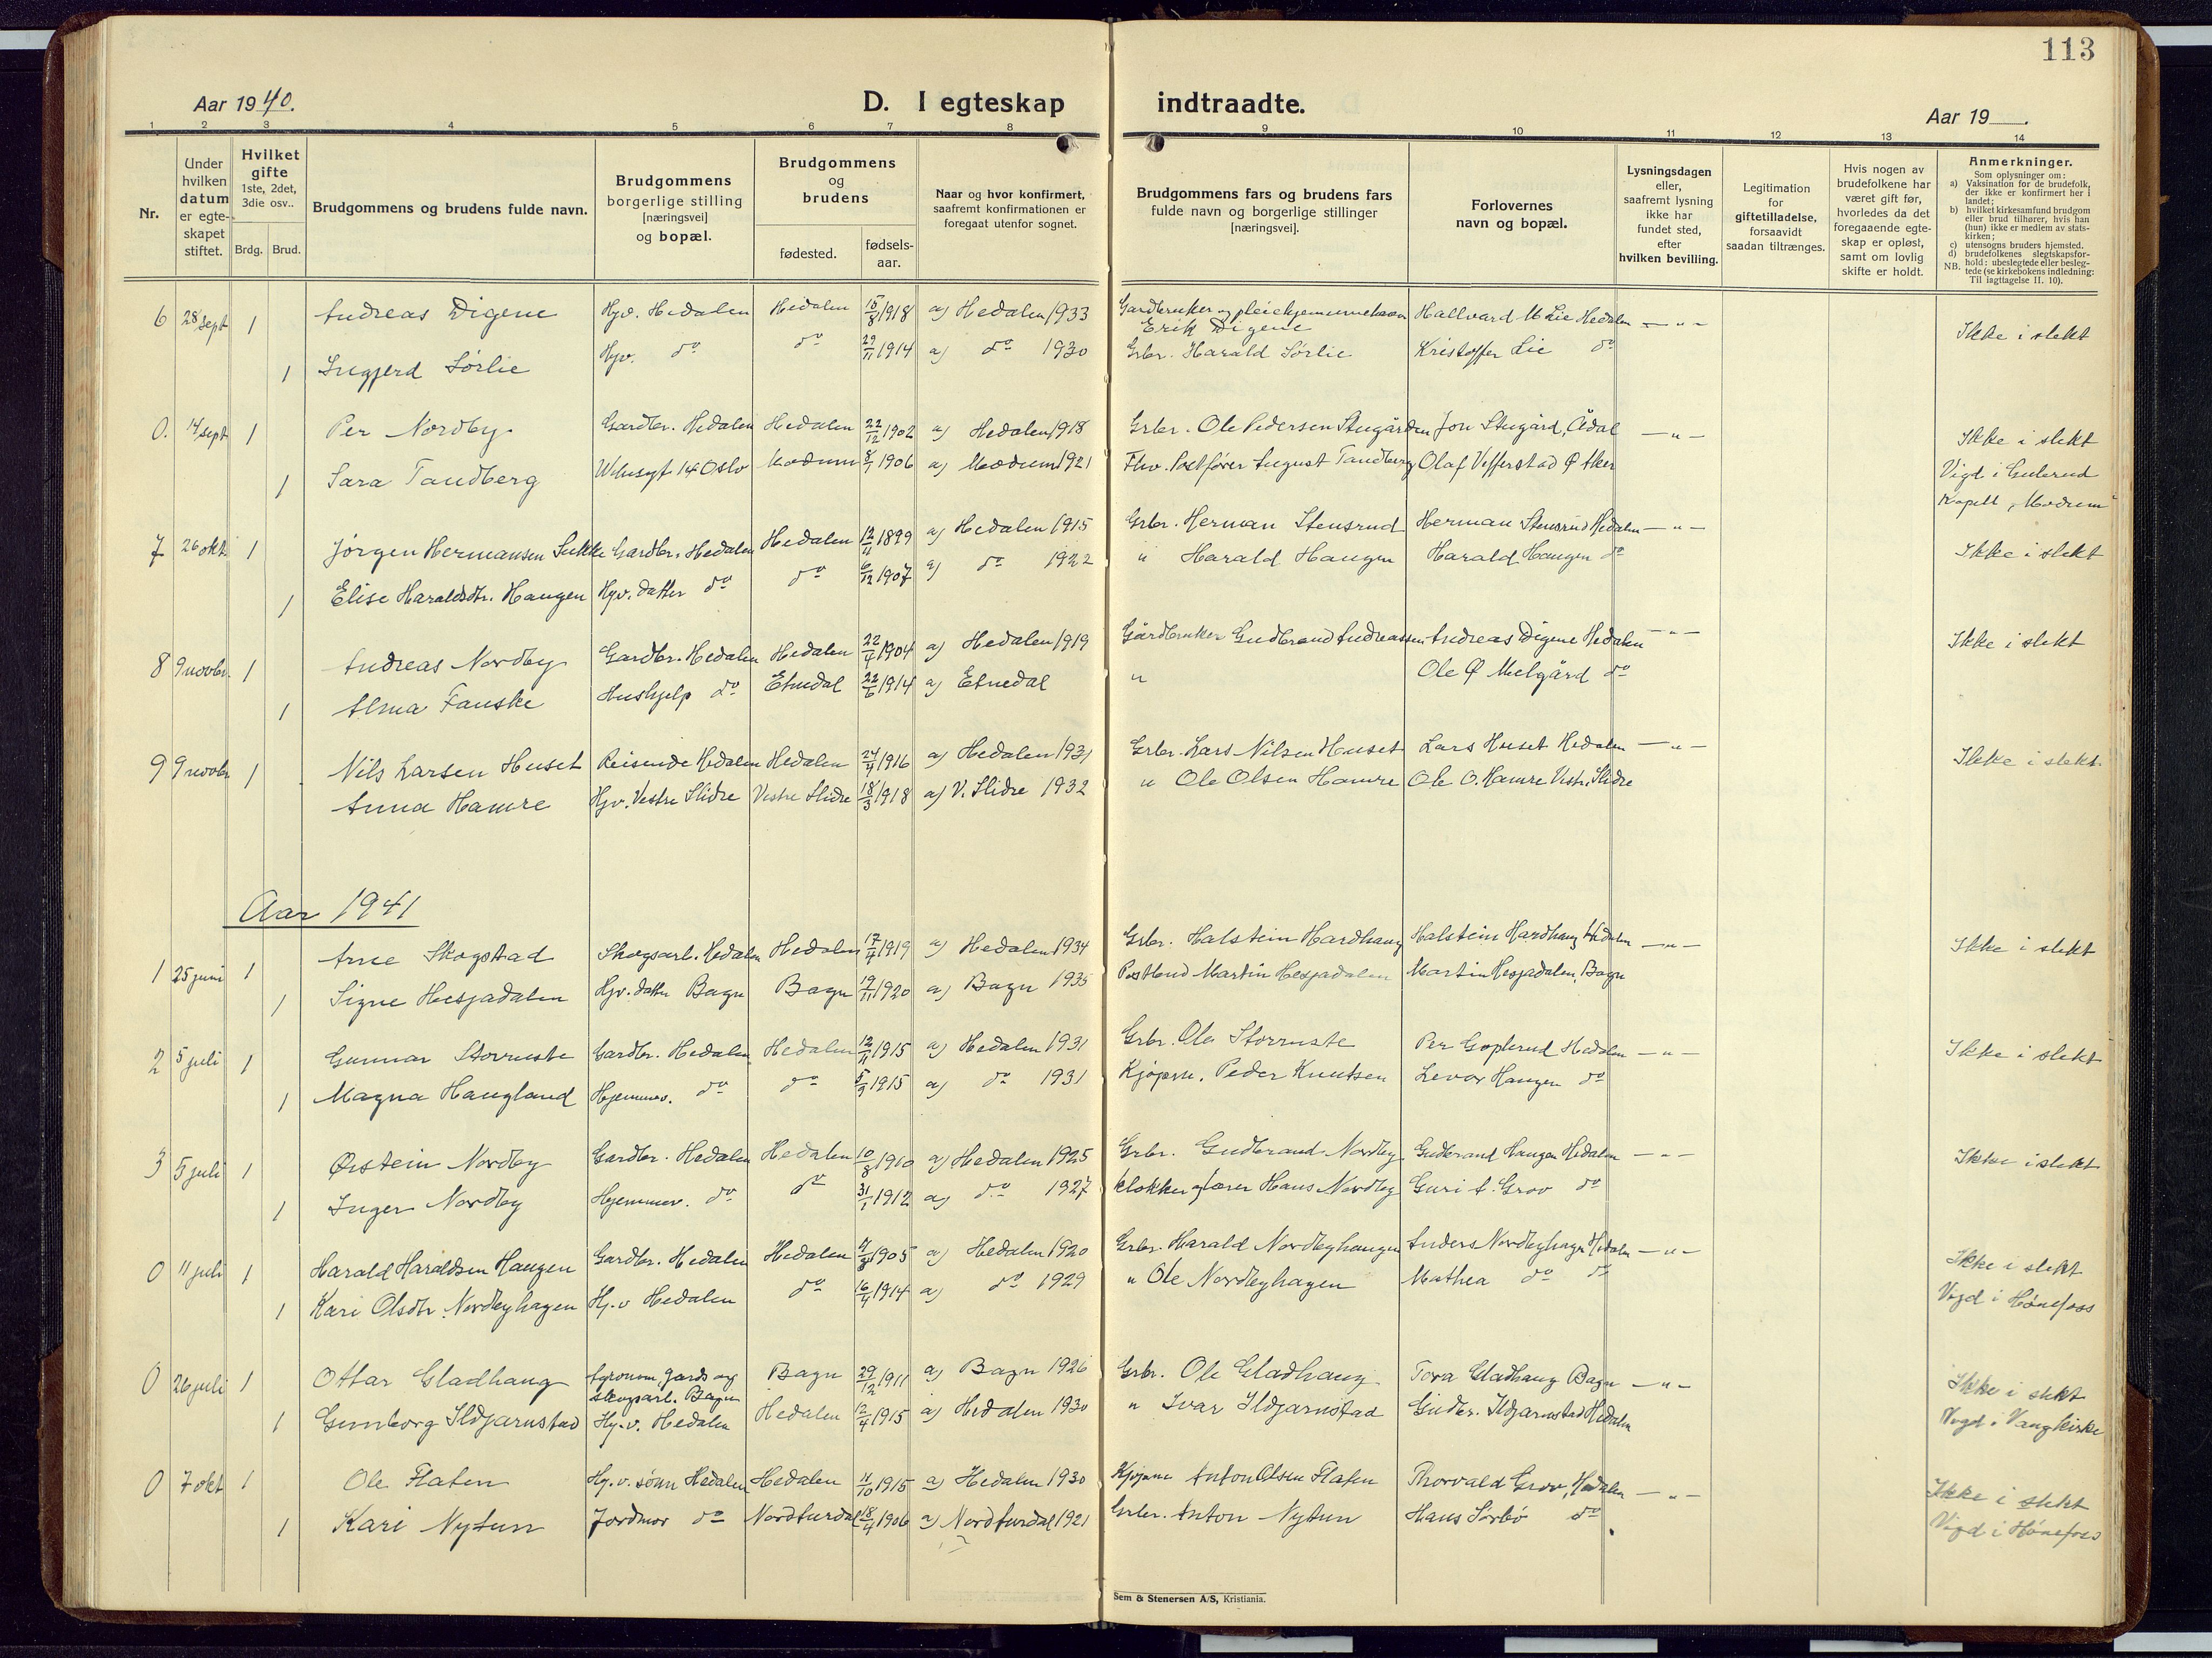 113
Aar 1940.
D. I egteskap indtraadte.
Aar 19
1 2 3 4 5 6 7 8 9 10 11 12 13 14
Nr.
Under hvilken datum er egte-skapet stiftet.
Hvilket gifte 1ste, 2det, 3die osv..
Brdg. Brud.
Brudgommens og brudens fulde navn.
Brudgommens borgerlige stilling [næringsvei] og bopæl.
Brudgommens og brudens
fødested. fødsels-aar.
Naar og hvor konfirmert, saafremt konfirmationen er foregaat utenfor sognet.
Brudgommens fars og brudens fars fulde navn og borgerlige stillinger [næringsvei].
Forlovernes navn og bopæl.
Lysningsdagen eller, saafremt lysning ikke har fundet sted, efter hvilken bevilling.
Legitimation for giftetilladelse, forsaavidt saadan tiltrænges.
Hvis nogen av brudefolkene har været gift før, hvorledes da det foregaaende egte-skap er opløst, samt om lovlig skifte er holdt.
Anmerkninger.
Som oplysninger om:
a) Vaksination for de brudefolk, der ikke er konfirmert her i landet;
b) hvilket kirkesamfund brudgom eller brud tilhører, hvis han (hun) ikke er medlem av stats-kirken;
c) utensogns bruders hjemsted.
d) brudefolkenes slegtskapsfor-hold: ubeslegtede eller besleg-tede (se kirkebokens indledning: Til iagttagelse II. 10).
NB.
6 28 sept 1 Andreas Digene Hjv. Hedalen Hedalen 15/8 1918 a) Hedalen 1933 Gardbruker og Erik Digene Hallvard M Lie Hedalen — " — Ikke i slekt
1 Ingjerd Sørlie Hjv. do do 29/11 1914 a) do 1930 Grbr. Harald Sørlie Kristoffer Lie do
0. 14 sept 1 Per Nordby Gardbr. Hedalen Hedalen 22/12 1902 a) Hedalen 1918 Grbr. Ole Pedersen Stugården Jon Stugård, Ådal — " — Ikke i slekt
1 Sara Tandberg Oslo Modum 8/7 1906 a) Modum 1921 Fhv. Postfører August Tandberg Olaf Vefferstad Ø Aker Vigd i Gulerud Kapell, Modum
7 26 okt 1 Jørgen Hermansen Sukke Gardbr. Hedalen Hedalen 12/11 1899 a) Hedalen 1915 Grbr. Herman Stensrud Herman Stensrud Hedalen — " — Ikke i slekt
1 Elise Haraldsdtr. Haugen Hjv. datter do do 6/12 1907 a) do 1922 " Harald Haugen Harald Haugen do
8 9 novbr. 1 Andreas Nordby Gardbr. Hedalen Hedalen 22/4 1904 a) Hedalen 1919 Gårdbruker Gudbrand Andreassen Andreas Digene Hedalen — " — Ikke i slekt
1 Alma Fauske Hushjelp do Etnedal 22/6 1914 a) Etnedal " Ole Ø Melgård do
9 9 novbr 1 Nils Larsen Huset Reisende Hedalen Hedalen 24/4 1916 a) Hedalen 1931 Grbr. Lars Nilsen Huset Lars Huset Hedalen — " — Ikke i slekt.
Anna Hamre Hjv. Vestre Slidre Vestre Slidre 18/3 1918 a) V. Slidre 1932 " Ole Olsen Hamre Ole O. Hamre Vestre Slidre
Aar 1941
1 25 juni 1 Arne Skogstad Skogsarb. Hedalen Hedalen 17/4 1919 a) Hedalen 1934 Grbr. Halstein Hardhaug Halstein Hardhaug Hedalen — " — Ikke i slekt
1 Signe Hesjadalen Hjv. datter Bagn Bagn 19/11 1920 a) Bagn 1935 Postbud Martin Hesjadalen Martin Hesjadalen, Bagn
2 5 juli 1 Gunnar Storruste Gardbr. Hedalen Hedalen 12/11 1915 a) Hedalen 1931 Grbr. Ole Storruste Per Goplerud Hedalen — " — Ikke i slekt
1 Magna Haugland Hjemmev. do do 5/9 1915 a) do 1931 Kjøpm. Peder Knutsen Levor Haugen do
3 5 juli 1 Øistein Nordby Gardbr. Hedalen Hedalen 10/8 1910 a) Hedalen 1925 Grbr. Gudbrand Nordby Gudbrand Haugen Hedalen — " — Ikke i slekt
1 Inger Nordby Hjemmev. do do 31/1 1912 a) do 1927 Klokker og lærer Hans Nordby Guri A. Grov do
0 11 juli 1 Harald Haraldsen Haugen Gardbr. Hedalen Hedalen 4/8 1905 a) Hedalen 1920 Grbr. Harald Nordbyhaugen Anders Nordbyhagen Hedalen — " — Ikke i slekt
1 Kari Olsdtr. Nordbyhagen Hj.v Hedalen do 16/4 1914 a) do 1929 " Ole Nordbyhagen Mathea do do Vigd i Hønefoss
0 26 juli 1 Ottar Gladhaug Agronom, gards og skogsarb. Bagn Bagn 29/12 1911 a) Bagn 1926 Grbr. Ole Gladhaug Tora Gladhaug Bagn — " — Ikke i slekt
1 Gunborg Ildjarnstad Hj.v. Hedalen Hedalen 12/4 1915 a) Hedalen 1930 " Ivar Ildjarnstad Gudbr. Ildjarnstad Hedalen Vigd i Vang kirke
0 7 okt 1 Ole Flaten Hj.v. sønn Hedalen Hedalen 11/10 1915 a) Hedalen 1930 Kjøpm Anton Olsen Flaten Thorvald Grov, Hedalen — " — Ikke i slekt
1 Kari Nytun Jordmor do Nordaurdal 18/4 1906 a) Nordaurdal 1921 Grbr. Anton Nytun Hans Sørbø do Vigd i Hønefoss
Sem & Stenersen A/S, Kristiania.